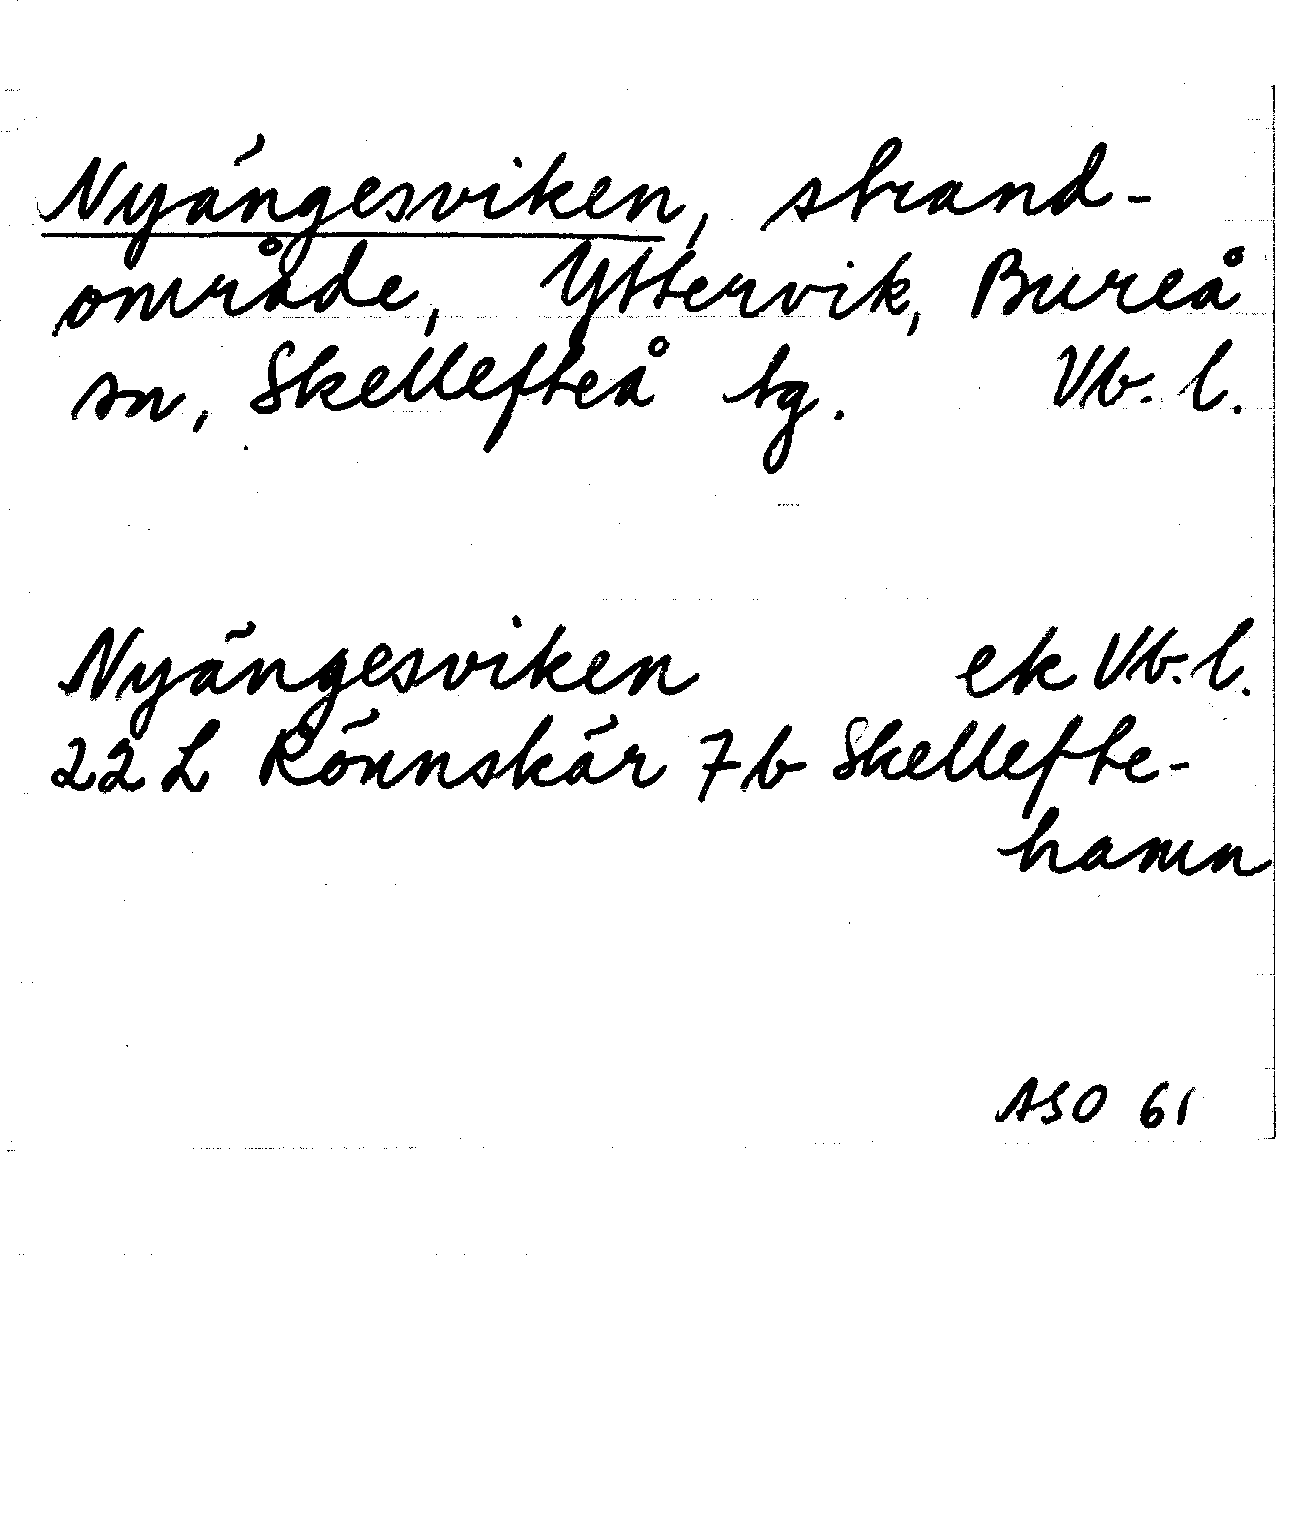 Nyängesviken, strand-
område, Yttervik, Bureå
sn, Skellefteå tg. Vb. l.
Nyängesviken ek Vb. l.
22 L Rönnskär 7 b Skellefte-
hamn
ASO 61